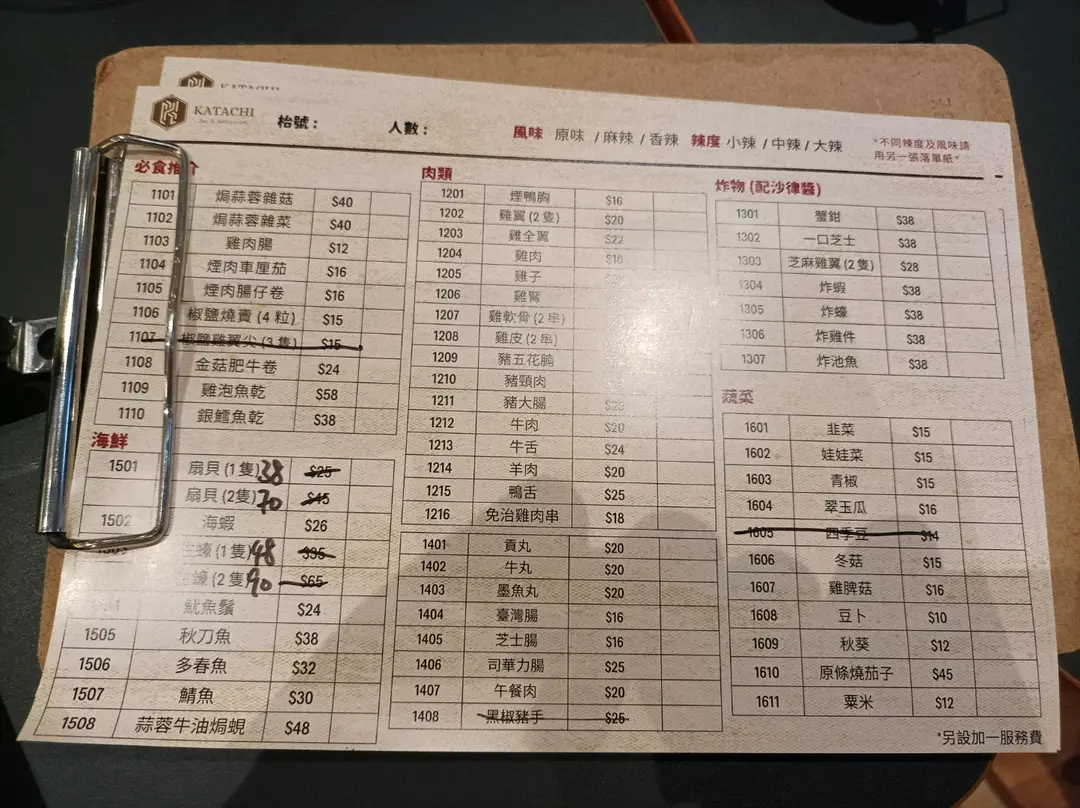 KATACHI
KATACHI
枱號：
人數：
風味 原味 / 麻辣 / 香辣 辣度 小辣 / 中辣 / 大辣
*不同辣度及風味請
用另一張落單紙*
必食推介
1101 焗蒜蓉雜菇 $40
1102 焗蒜蓉雜菜 $40
1103 雞肉腸 $12
1104 煙肉車厘茄 $16
1105 煙肉腸仔卷 $16
1106 椒鹽燒賣 (4 粒) $15
1107 椒鹽雞翼尖 (3 隻) $15
1108 金菇肥牛卷 $24
1109 雞泡魚乾 $58
1110 銀鱈魚乾 $38
海鮮
1501 扇貝 (1 隻) 38 $25
扇貝 (2隻) 70 $45
1502 海蝦 $26
蠔 (1 隻) 48 $35
蠔 (2 隻) 90 $65
魷魚鬚 $24
1505 秋刀魚 $38
1506 多春魚 $32
1507 鯖魚 $30
1508 蒜蓉牛油焗蜆 $48
肉類
1201 煙鴨胸 $16
1202 雞翼 (2 隻) $20
1203 雞全翼 $22
1204 雞肉 $16
1205 雞子
1206 雞腎
1207 雞軟骨 (2 串)
1208 雞皮 (2 串)
1209 豬五花腩
1210 豬頸肉
1211 豬大腸
1212 牛肉 $20
1213 牛舌 $24
1214 羊肉 $20
1215 鴨舌 $25
1216 免治雞肉串 $18
1401 貢丸 $20
1402 牛丸 $20
1403 墨魚丸 $20
1404 臺灣腸 $16
1405 芝士腸 $16
1406 司華力腸 $25
1407 午餐肉 $20
1408 黑椒豬手 $25
炸物 (配沙律醬)
1301 蟹鉗 $38
1302 一口芝士 $38
1303 芝麻雞翼 (2 隻) $28
1304 炸蝦 $38
1305 炸蠔 $38
1306 炸雞件 $38
1307 炸池魚 $38
蔬菜
1601 韭菜 $15
1602 娃娃菜 $15
1603 青椒 $15
1604 翠玉瓜 $16
1605 四季豆 $14
1606 冬菇 $15
1607 雞脾菇 $16
1608 豆卜 $10
1609 秋葵 $12
1610 原條燒茄子 $45
1611 粟米 $12
*另設加一服務費